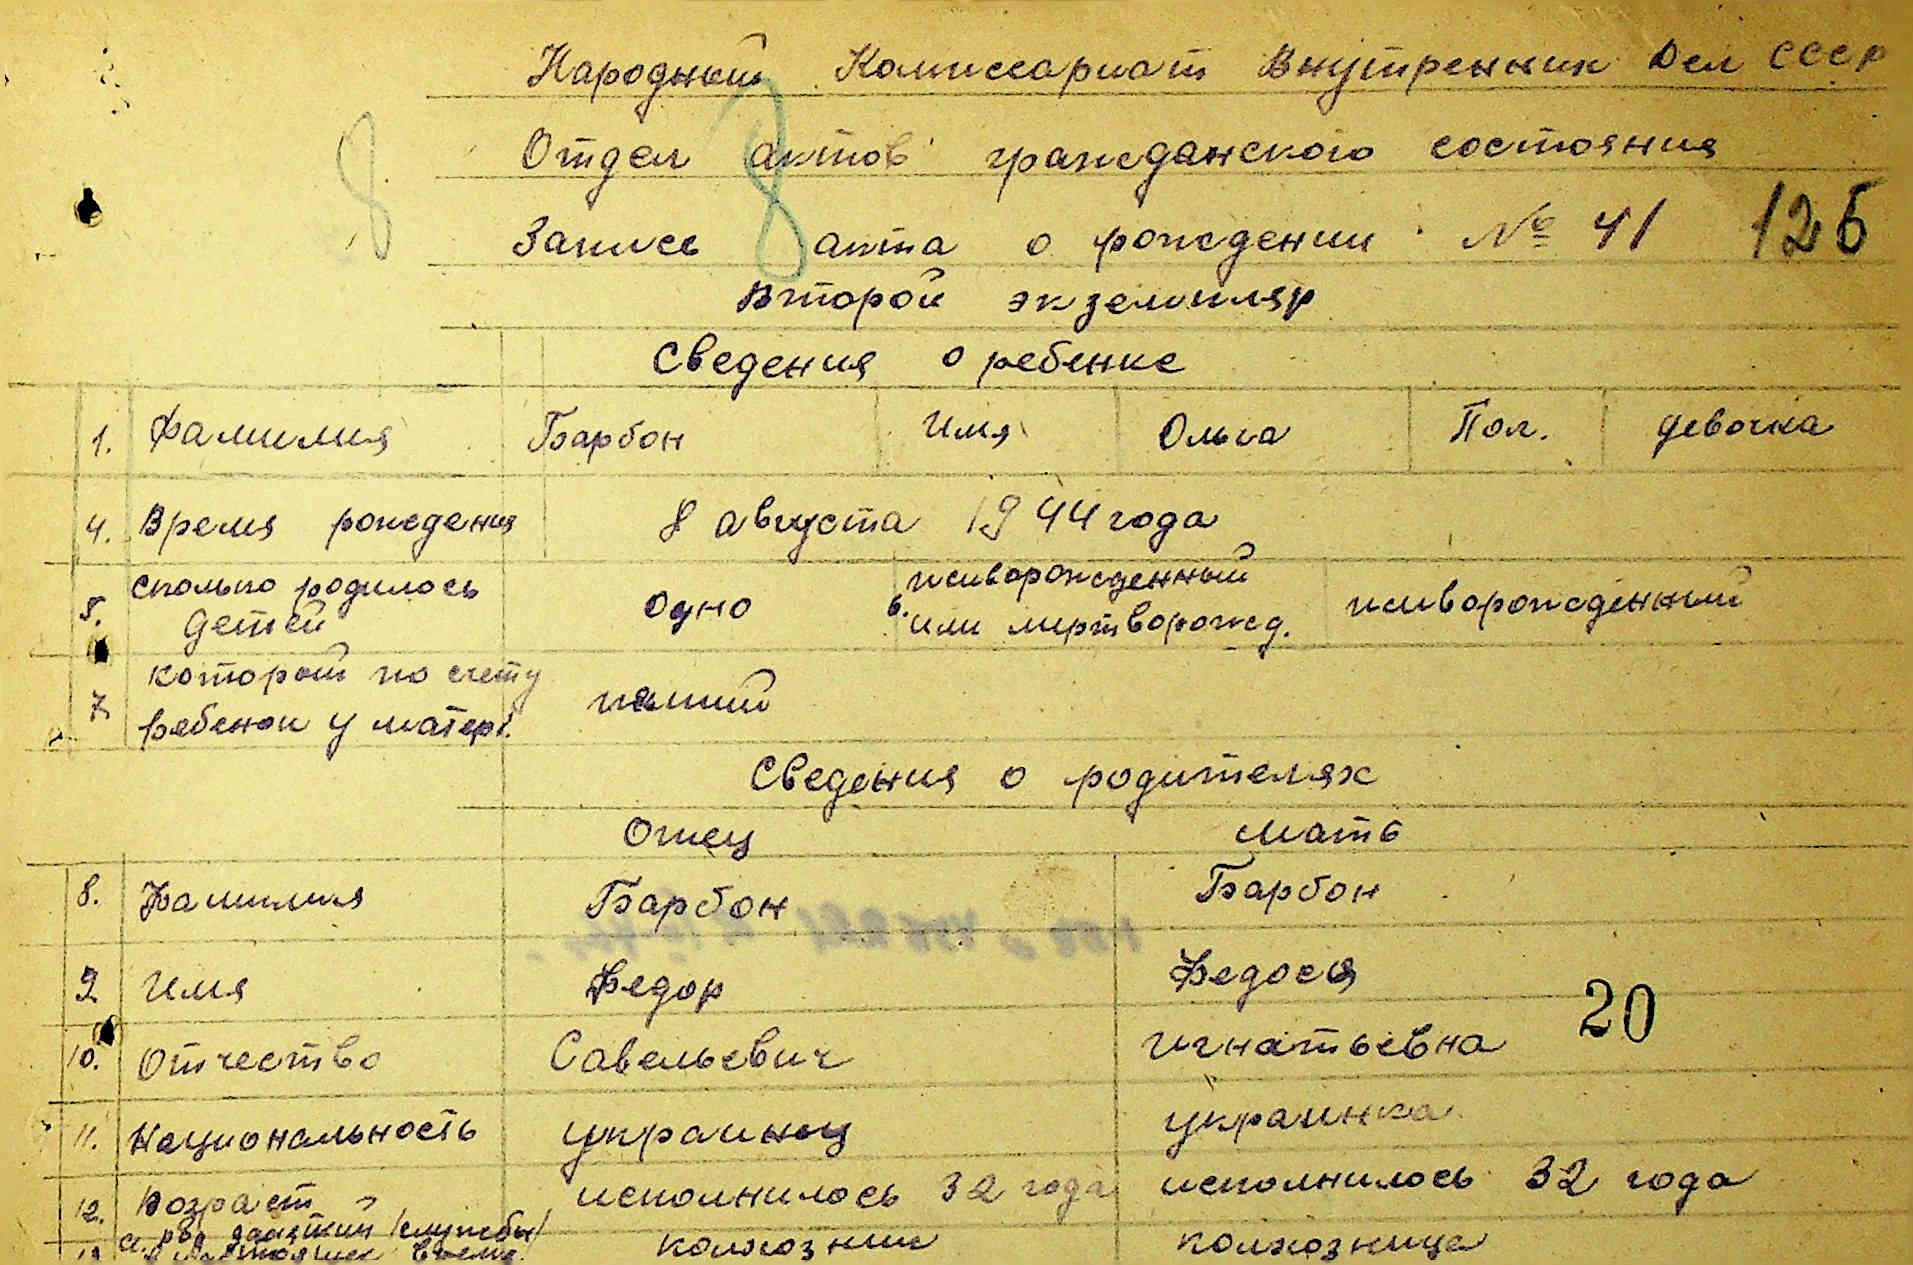 Народный Комиссариат Внутренних Дел СССР
Отдел актов гражданского состояния
Запись акта о рождении № 41 126
Второй экземпляр
Сведения о ребенке
1. Фамилия Барбон Имя Ольга Пол. девочка
4. Время рождения 8 августа 1944 года
5. Сколько родилось детей одно 6. живорожденный или мертворожд. живорожденный
7. который по счету ребенок у матери.
Сведения о родителях
Отец Мать
8. Фамилия Барбон Барбон
9 Имя Федор Федося
20
10. Отчество Савельевич Игнатьевна
11. Национальность украинец украинка
12. Возраст исполнилось 32 года исполнилось 32 года
колхозник колхозница